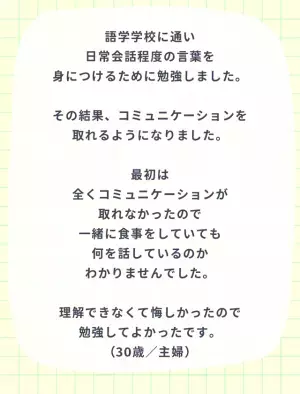 語学学校に通い
日常会話程度の言葉を
身につけるために勉強しました。
その結果、コミュニケーションを
取れるようになりました。
最初は
全くコミュニケーションが
取れなかったので
一緒に食事をしていても
何を話しているのか
わかりませんでした。
理解できなくて悔しかったので
勉強してよかったです。
（30歳／主婦）